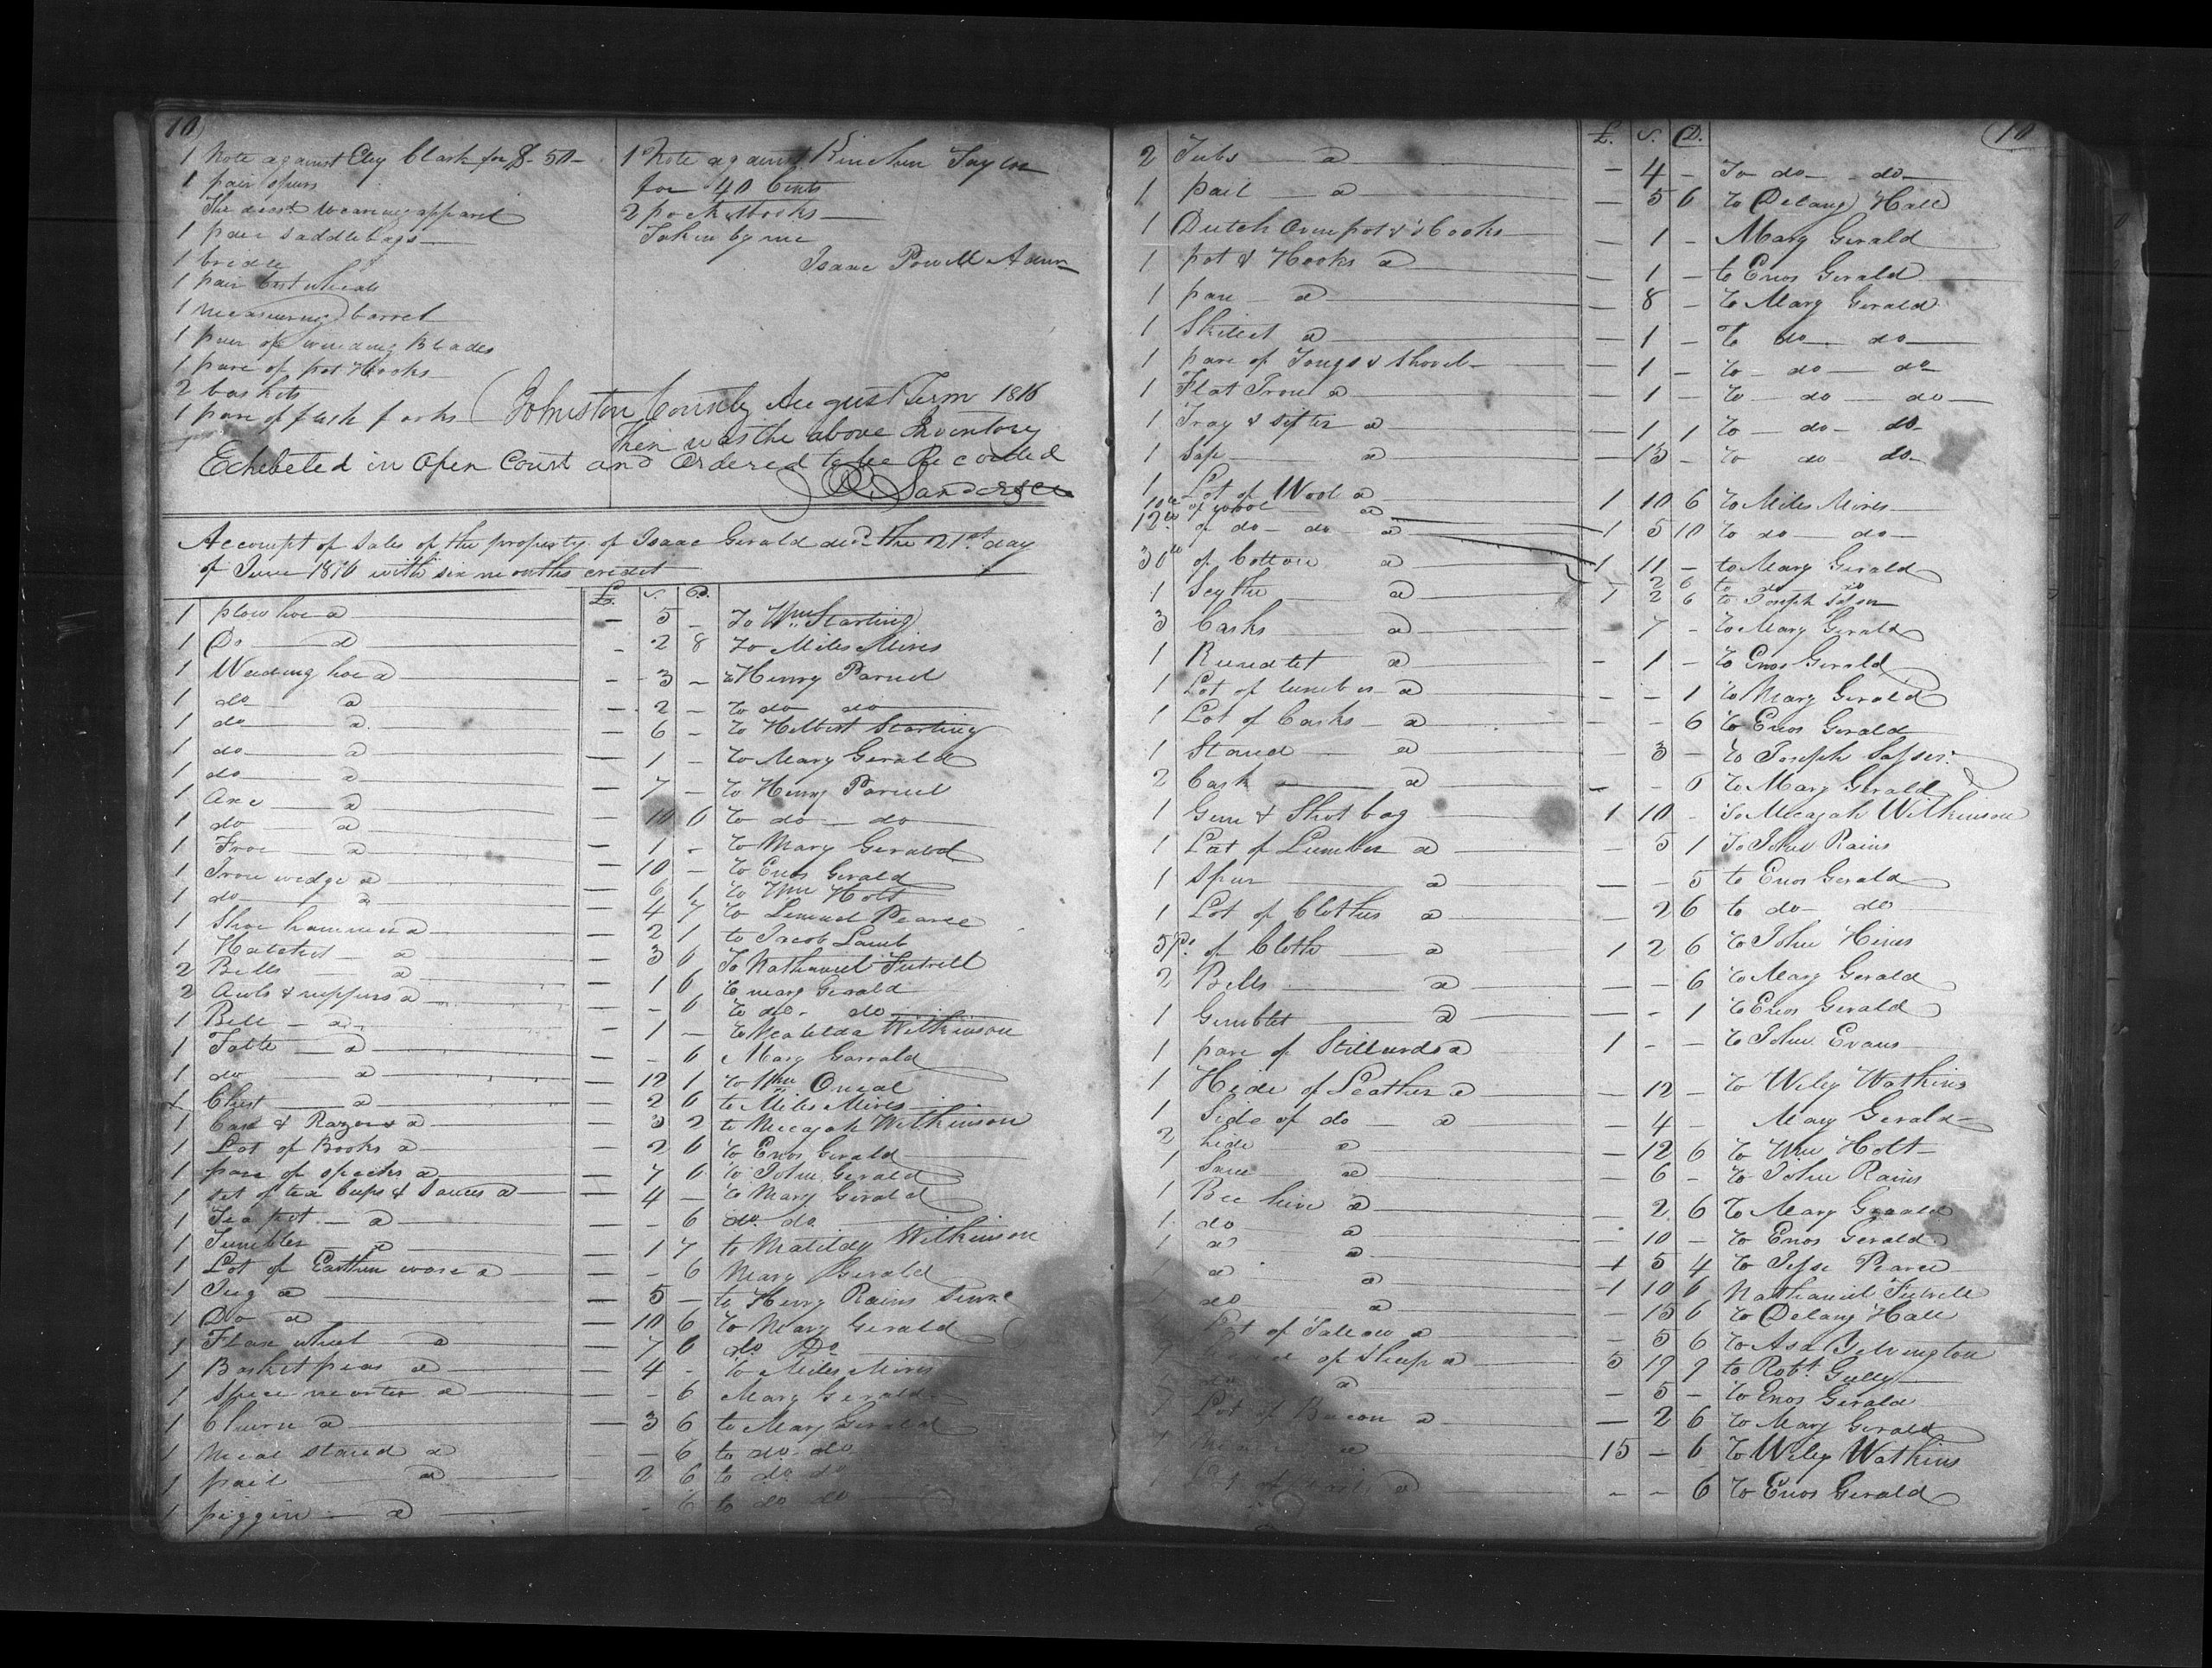 10)
1 Note against Eley Clark for $ 50 -
1 pair Spurs
The decsd Wearing apparel
1 pair Saddlebags
1 bredle
1 pair Cart wheels
1 measuring barrel
1 pair of winding Blades
1 pare of pot Hooks
2 baskets
1 pare of flesh forks
1 Note against Kinchen Taylor
for 40 Cents
2 pocketbooks
Taken by me
Isaac Powell Admr
Johnston County August Term 1816
Then was the above Inventory
Exhibeted in Open Court and Ordered to be Recorded
R. Sanders CC
Accompt of Sales of the property of Isaac Gerald decd the 21st day
of June 1816 with six months credit
£. S. D.
1 plow hoe a — 5 — To Wm Starling
1 Do a — 2 8 To Miles Mires
1 Weeding hoe a — 3 — to Henry Parnel
1 do a — 2 — to do do
1 do a — 6 — to Hilbert Starling
1 do a — 1 — to Mary Gerald
1 do a — 7 — to Henry Parnel
1 Axe a — 10 6 to do — do
1 do a — 1 — to Mary Gerald
1 Froe a — 10 — to Enos Gerald
1 Iron wedge a — 6 1 to Wm Holt
1 do a — 4 7 to Lemuel Pearce
1 Shoe hammer a — 2 1 to Jacob Lamb
1 Hatchet a — 3 6 To Nathaniel Futrell
2 Bells a — 1 6 to mary Gerald
2 Awls & nippers a — — 6 to do. do
1 Bell a — 1 — to Matilda Wilkinson
1 Table a — — 6 Mary Garrald
1 do a — 12 1 to Wm Oneal
1 Chest a — 2 6 to Miles Mires
1 Case & Razors a — 3 2 to Micajah Wilkinson
1 Lot of Books a — 2 6 to Enos Gerald
1 pare of specks a — 7 6 to John Gerald
1 set of tea Cups & Saucers a — 4 — to Mary Gerald
1 Tea pot a — — 6 do. do
1 Tumbler a — 1 7 to Matilday Wilkinson
1 Lot of Earthen ware a — — 6 Mary Gerald
1 Jug a — 5 — to Henry Rains Senr
1 Do a — 10 6 to Mary Gerald
1 Flax wheel a 7 6 do Do
1 Basket peas a 4 - to Miles Mires
1 Spice morter a - 6 Mary Gerald
1 Churn a — 3 6 to Mary Gerald
1 Meal stand a — 6 to do. do
1 pail a 2 6 to do do
1 piggin a - 6 to do do
(10
£. S. D.
2 Tubs a — 4 — To do — do
1 pail a — 5 6 to Delany Hall
1 Dutch Oven pot & hooks — 1 — Mary Gerald
1 pot & Hooks a — 1 — to Enos Gerald
1 pan a — 8 — to Mary Gerald
1 Skillet a — 1 — To do do
1 pare of Tongs & Shovel — 1 — to do do
1 Flat Iron a — 1 — to do do
1 Tray & sifter a — 1 1 to do do
1 Safe a — 15 — to do do
1 Lot of Wool a 1 10 6 to Miles Mires
10 lb of wool a
12 lb of do do a 1 5 10 to do — do
30 lb of Cotton a 1 11 — to Mary Gerald
2 6 to do do
1 Scythe a 2 6 to Joseph
3 Casks a — 7 — to Mary Gerald
1 Rundlet a — 1 — to Enos Gerald
1 Lot of lumber a — — 1 to Mary Gerald
1 Lot of Casks a — — 6 to Enos Gerald
1 Stand a — 3 — to Joseph
2 Cask a — — 6 to Mary Gerald
1 Gun & Shot bag 1 10 - To Micajah Wilkinson
1 Lot of Lumber a — 5 1 To John Rains
1 Spur a — — 5 to Enos Gerald
1 Lot of Clothes a — 2 6 to do do
5 ps. of Cloth a 1 2 6 to John Hines
2 Bells a — — 6 to Mary Gerald
1 Gimblet a — — 1 to Enos Gerald
1 pare of Stillurds a 1 - - to John Evans
1 Hide of Leather a — 12 — to Wiley Watkins
1 Side of do a — 4 — Mary Gerald
2 hide a — 12 6 to Wm Holt
1 Saw a — 6 — to John Rains
1 Bee hive a 2 6 to Mary Gerald
1 do a — 10 — to Enos Gerald
1 do a 1 5 4 to Jesse Pearce
a 1 10 6 Nathaniel Futrell
do a — 15 6 to Delany Hall
of Tallow a — 5 6 to Asa Yelvington
of Sheep a 5 17 7 to Robt. Gully
a — 5 — to Enos Gerald
Lot of Bacon a — 2 6 to Mary Gerald
a 15 — 6 to Wiley Watkins
a — — 6 to Enos Gerald